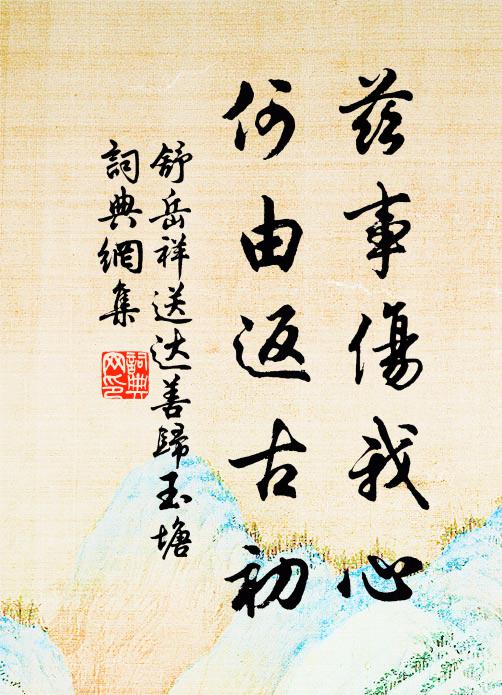 兹事傷我心
何由返古初
舒岳祥送达善歸玉塘
詞典網集
詞典网印